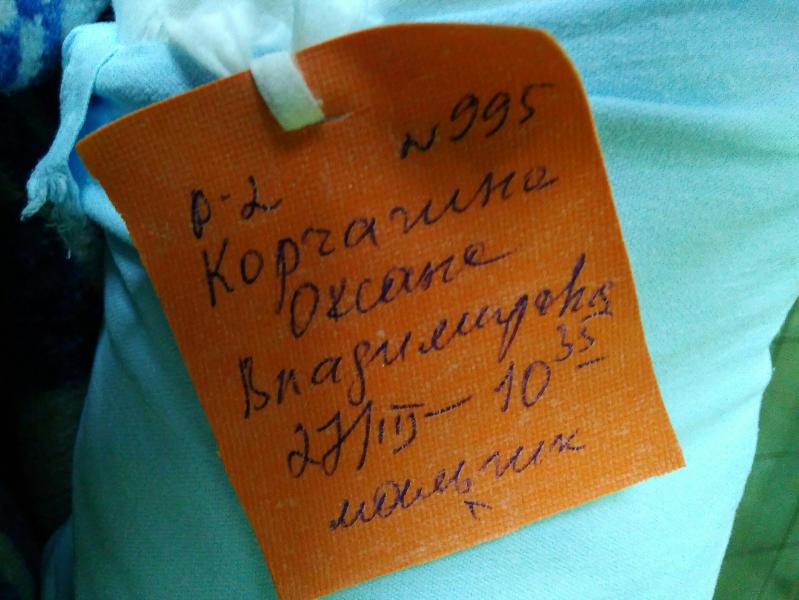 N 995
р-2
Корчагина
Оксана
Владимировна
27/III — 10 35
мальчик